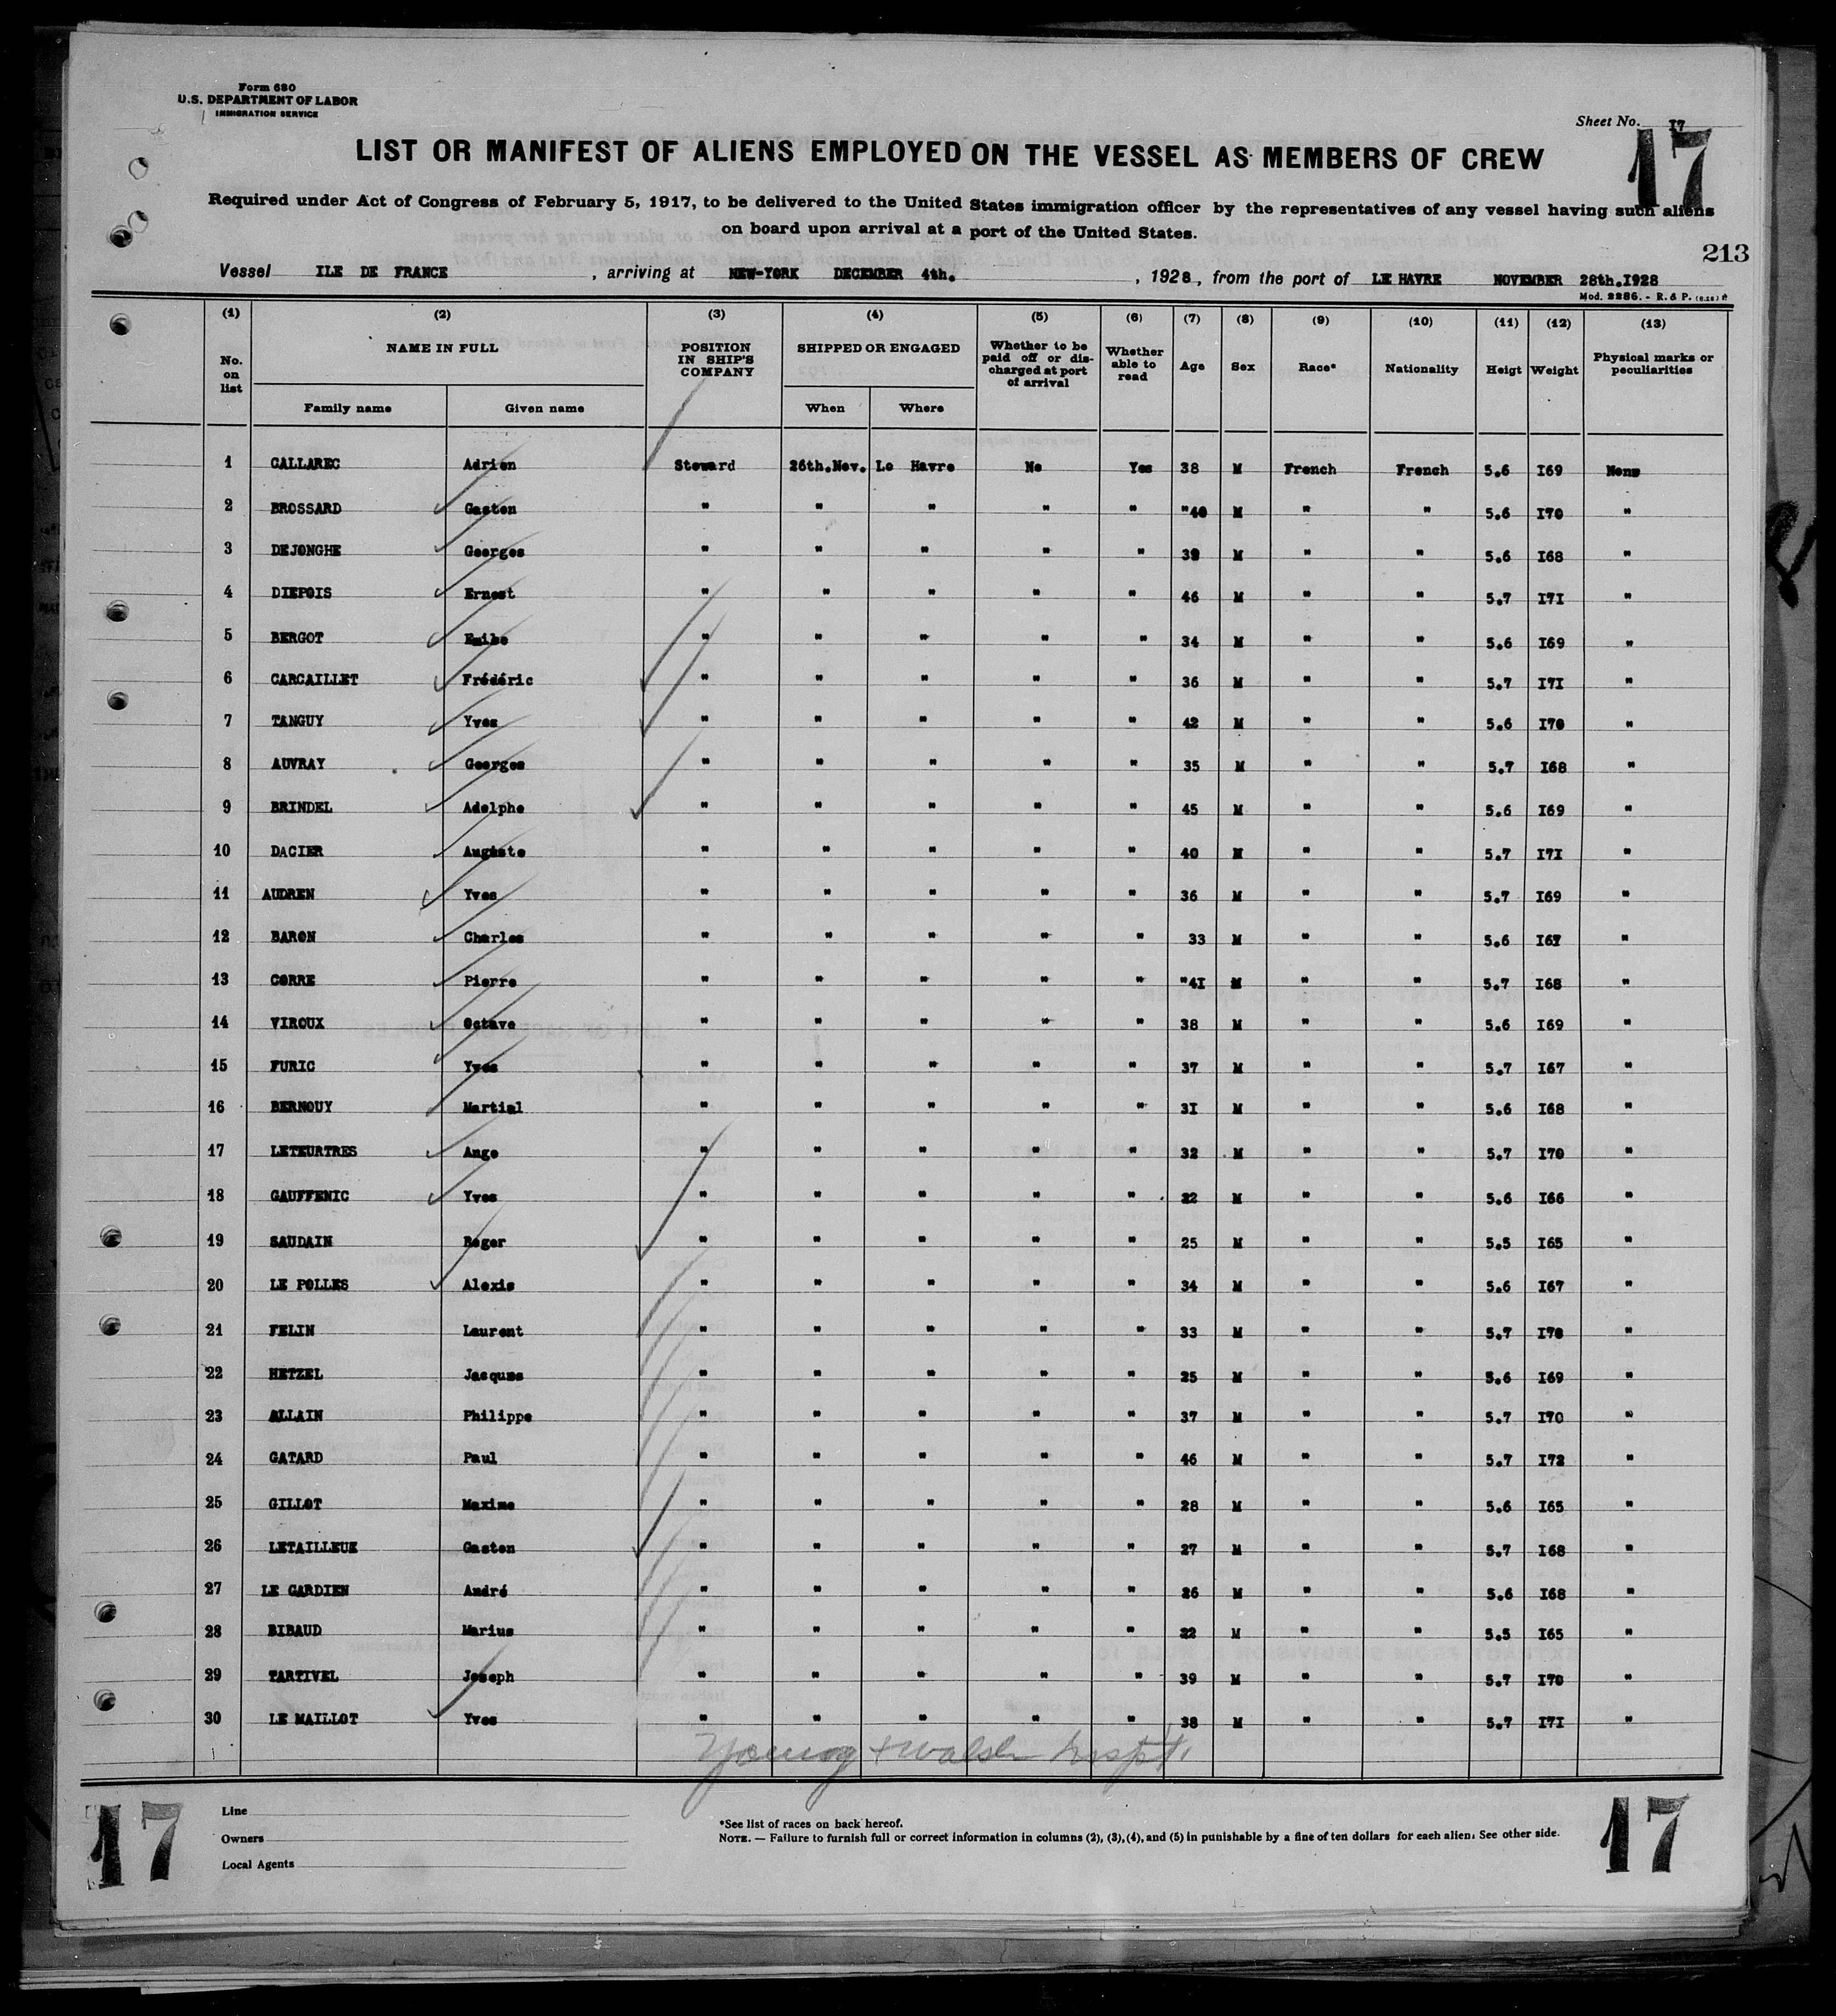 Form 680
U.S. DEPARTMENT OF LABOR
IMMIGRATION SERVICE
Sheet No. I7
17
LIST OR MANIFEST OF ALIENS EMPLOYED ON THE VESSEL AS MEMBERS OF CREW
Required under Act of Congress of February 5, 1917, to be delivered to the United States immigration officer by the representatives of any vessel having such aliens
on board upon arrival at a port of the United States.
213
Vessel ILE DE FRANCE , arriving at NEW-YORK DECEMBER 4th. , 1928, from the port of LE HAVRE NOVEMBER 28th.I928
Mod. 2286. - R. & P.
(1) (2) (3) (4) (5) (6) (7) (8) (9) (10) (11) (12) (13)
No. on list NAME IN FULL POSITION IN SHIP'S COMPANY SHIPPED OR ENGAGED Whether to be paid off or discharged at port of arrival Whether able to read Age Sex Race* Nationality Heigt Weight Physical marks or peculiarities
Family name Given name When Where
1 CALLAREC Adrien Steward 26th.Nov. Le Havre No Yes 38 M French French 5.6 I69 None
2 BROSSARD Gaston " " " " " "40 M " " 5.6 I70 "
3 DEJONGHE Georges " " " " " 39 M " " 5.6 I68 "
4 DIEPOIS Ernest " " " " " 46 M " " 5.7 I7I "
5 BERGOT Emile " " " " " 34 M " " 5.6 I69 "
6 CARCAILLET Frédéric " " " " " 36 M " " 5.7 I7I "
7 TANGUY Yves " " " " " 42 M " " 5.6 I70 "
8 AUVRAY Georges " " " " " 35 M " " 5.7 I68 "
9 BRINDEL Adolphe " " " " " 45 M " " 5.6 I69 "
10 DACIER Auguste " " " " " 40 M " " 5.7 I7I "
11 AUDREN Yves " " " " " 36 M " " 5.7 I69 "
12 BARON Charles " " " " " 33 M " " 5.6 I67 "
13 CORRE Pierre " " " " " "4I M " " 5.7 I68 "
14 VIROUX Octave " " " " " 38 M " " 5.6 I69 "
15 FURIC Yves " " " " " 37 M " " 5.7 I67 "
16 BERNOUY Martial " " " " " 3I M " " 5.6 I68 "
17 LETEURTRES Ange " " " " " 32 M " " 5.7 I70 "
18 GAUFFENIC Yves " " " " " 22 M " " 5.6 I66 "
19 SAUDAIN Roger " " " " " 25 M " " 5.5 I65 "
20 LE POLLES Alexis " " " " " 34 M " " 5.6 I67 "
21 FELIN Laurent " " " " " 33 M " " 5.7 I70 "
22 HETZEL Jacques " " " " " 25 M " " 5.6 I69 "
23 ALLAIN Philippe " " " " " 37 M " " 5.7 I70 "
24 GATARD Paul " " " " " 46 M " " 5.7 I72 "
25 GILLOT Maxime " " " " " 28 M " " 5.6 I65 "
26 LETAILLEUR Gaston " " " " " 27 M " " 5.7 I68 "
27 LE GARDIEN André " " " " " 26 M " " 5.6 I68 "
28 BIBAUD Marius " " " " " 22 M " " 5.5 I65 "
29 TARTIVEL Joseph " " " " " 39 M " " 5.7 I70 "
30 LE MAILLOT Yves " " " " " 38 M " " 5.7 I7I "
Young + Walsh Inspt.
17
Line
Owners
Local Agents
*See list of races on back hereof.
NOTE. — Failure to furnish full or correct information in columns (2), (3), (4), and (5) in punishable by a fine of ten dollars for each alien. See other side.
17